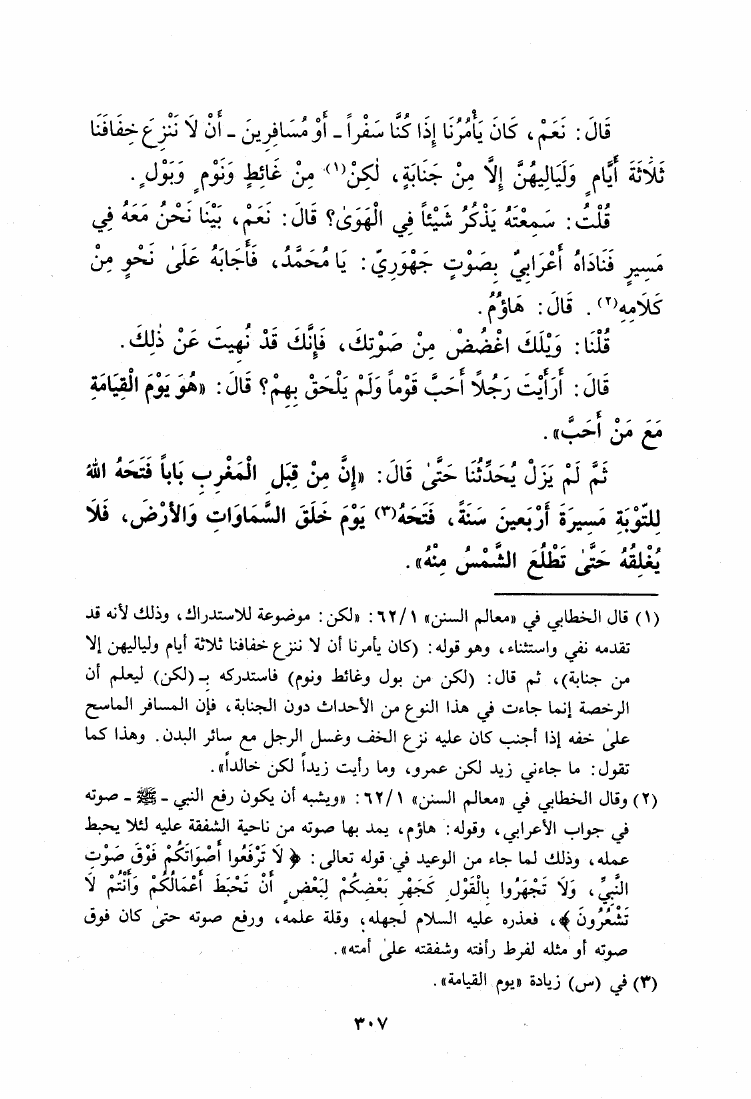 قَالَ: نَعَمْ، كَانَ يَأْمُرُنَا إِذَا كُنَّا سَفْراً ـ أَوْ مُسَافِرِينَ ـ أَنْ لَا نَنْزِعَ خِفَافَنَا
ثَلَاثَةَ أَيَّامٍ وَلَيَالِيهُنَّ إِلَّا مِنْ جَنَابَةٍ، لٰكِنْ(١) مِنْ غَائِطٍ وَنَوْمٍ وَبَوْلٍ.
قُلْتُ: سَمِعْتَهُ يَذْكُرُ شَيْئاً فِي الْهَوَىٰ؟ قَالَ: نَعَمْ، بَيْنَا نَحْنُ مَعَهُ فِي
مَسِيرٍ فَنَادَاهُ أَعْرَابِيٌّ بِصَوْتٍ جَهْوَرِيّ: يَا مُحَمَّدُ، فَأَجَابَهُ عَلَىٰ نَحْوٍ مِنْ
كَلَامِهِ(٢). قَالَ: هَاؤُمُ.
قُلْنَا: وَيْلَكَ اغْضُضْ مِنْ صَوْتِكَ، فَإِنَّكَ قَدْ نُهِيتَ عَنْ ذٰلِكَ.
قَالَ: أَرَأَيْتَ رَجُلًا أَحَبَّ قَوْماً وَلَمْ يَلْحَقْ بِهِمْ؟ قَالَ: «هُوَ يَوْمَ الْقِيَامَةِ
مَعَ مَنْ أَحَبَّ».
ثُمَّ لَمْ يَزَلْ يُحَدِّثُنَا حَتَّىٰ قَالَ: «إِنَّ مِنْ قِبَلِ الْمَغْرِبِ بَاباً فَتَحَهُ اللهُ
لِلتَّوْبَةِ مَسِيرَةَ أَرْبَعِينَ سَنَةً، فَتَحَهُ(٣) يَوْمَ خَلَقَ السَّمَاوَاتِ وَالأَرْضَ، فَلَا
يُغْلِقُهُ حَتَّىٰ تَطْلُعَ الشَّمْسُ مِنْهُ».
(١) قال الخطابي في «معالم السنن» ٦٢/١: «لكن: موضوعة للاستدراك، وذلك لأنه قد
تقدمه نفي واستثناء، وهو قوله: (كان يأمرنا أن لا ننزع خفافنا ثلاثة أيام ولياليهن إلا
من جنابة)، ثم قال: (لكن من بول وغائط ونوم) فاستدركه بـ(لكن) ليعلم أن
الرخصة إنما جاءت في هذا النوع من الأحداث دون الجنابة، فإن المسافر الماسح
علىٰ خفه إذا أجنب كان عليه نزع الخف وغسل الرجل مع سائر البدن. وهذا كما
تقول: ما جاءني زيد لكن عمرو، وما رأيت زيداً لكن خالداً».
(٢) وقال الخطابي في «معالم السنن» ٦٢/١: «ويشبه أن يكون رفع النبي ـ ﷺ ـ صوته
في جواب الأعرابي، وقوله: هاؤم، يمد بها صوته من ناحية الشفقة عليه لئلا يحبط
عمله، وذلك لما جاء من الوعيد في قوله تعالى: ﴿لَا تَرْفَعُوا أَصْوَاتَكُمْ فَوْقَ صَوْتِ
النَّبِيِّ، وَلَا تَجْهَرُوا بِالْقَوْلِ كَجَهْرِ بَعْضِكُمْ لِبَعْضٍ أَنْ تَحْبَطَ أَعْمَالُكُمْ وَأَنْتُمْ لَا
تَشْعُرُونَ﴾، فعذره عليه السلام لجهله، وقلة علمه، ورفع صوته حتىٰ كان فوق
صوته أو مثله لفرط رأفته وشفقته علىٰ أمته».
(٣) في (س) زيادة «يوم القيامة».
٣٠٧